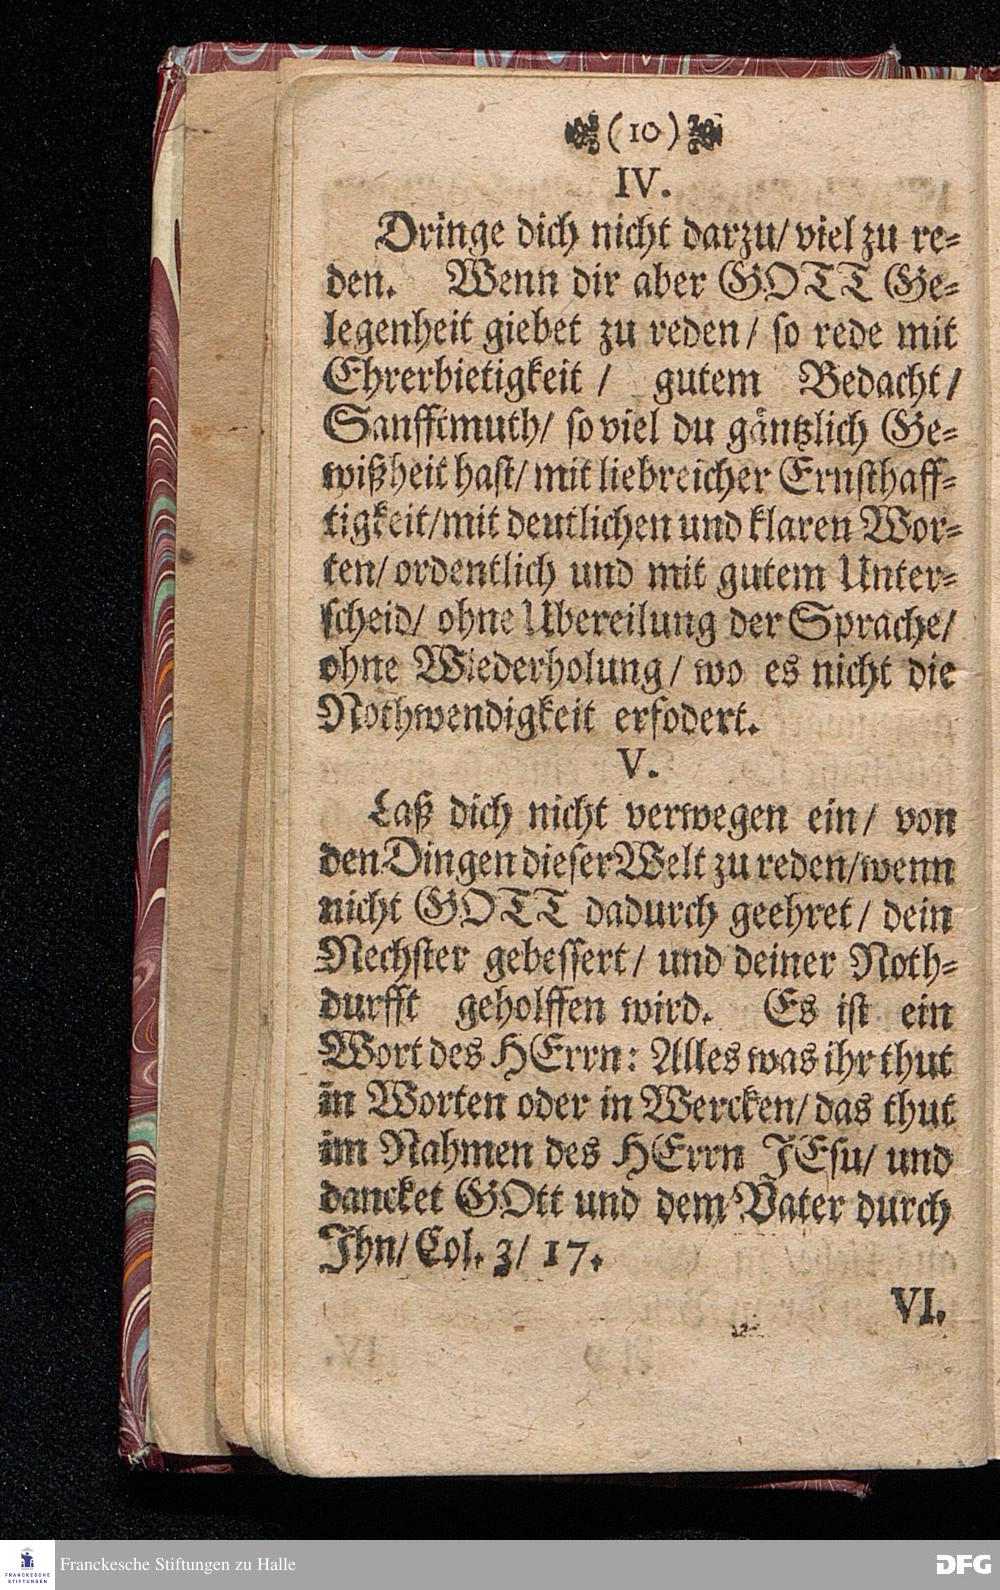 (10)
IV.
Dringe dich nicht darzu/ viel zu re-
den. Wenn dir aber GOTT Ge-
legenheit giebet zu reden/ so rede mit
Ehrerbietigkeit / gutem Bedacht/
Sanfftmuth/ so viel du gäntzlich Ge-
wißheit hast/ mit liebreicher Ernsthaff-
tigkeit/ mit deutlichen und klaren Wor-
ten/ ordentlich und mit gutem Unter-
scheid/ ohne Ubereilung der Sprache/
ohne Wiederholung/ wo es nicht die
Nothwendigkeit erfodert.
V.
Laß dich nicht verwegen ein/ von
den Dingen dieser Welt zu reden/ wenn
nicht GOTT dadurch geehret/ dein
Nechster gebessert/ und deiner Noth-
durfft geholffen wird. Es ist ein
Wort des HErrn: Alles was ihr thut
in Worten oder in Wercken/ das thut
im Nahmen des HErrn JEsu/ und
dancket GOtt und dem Vater durch
Jhn/ Col. 3/ 17.
VI.
FRANCKESCHE STIFTUNGEN
Franckesche Stiftungen zu Halle
DFG